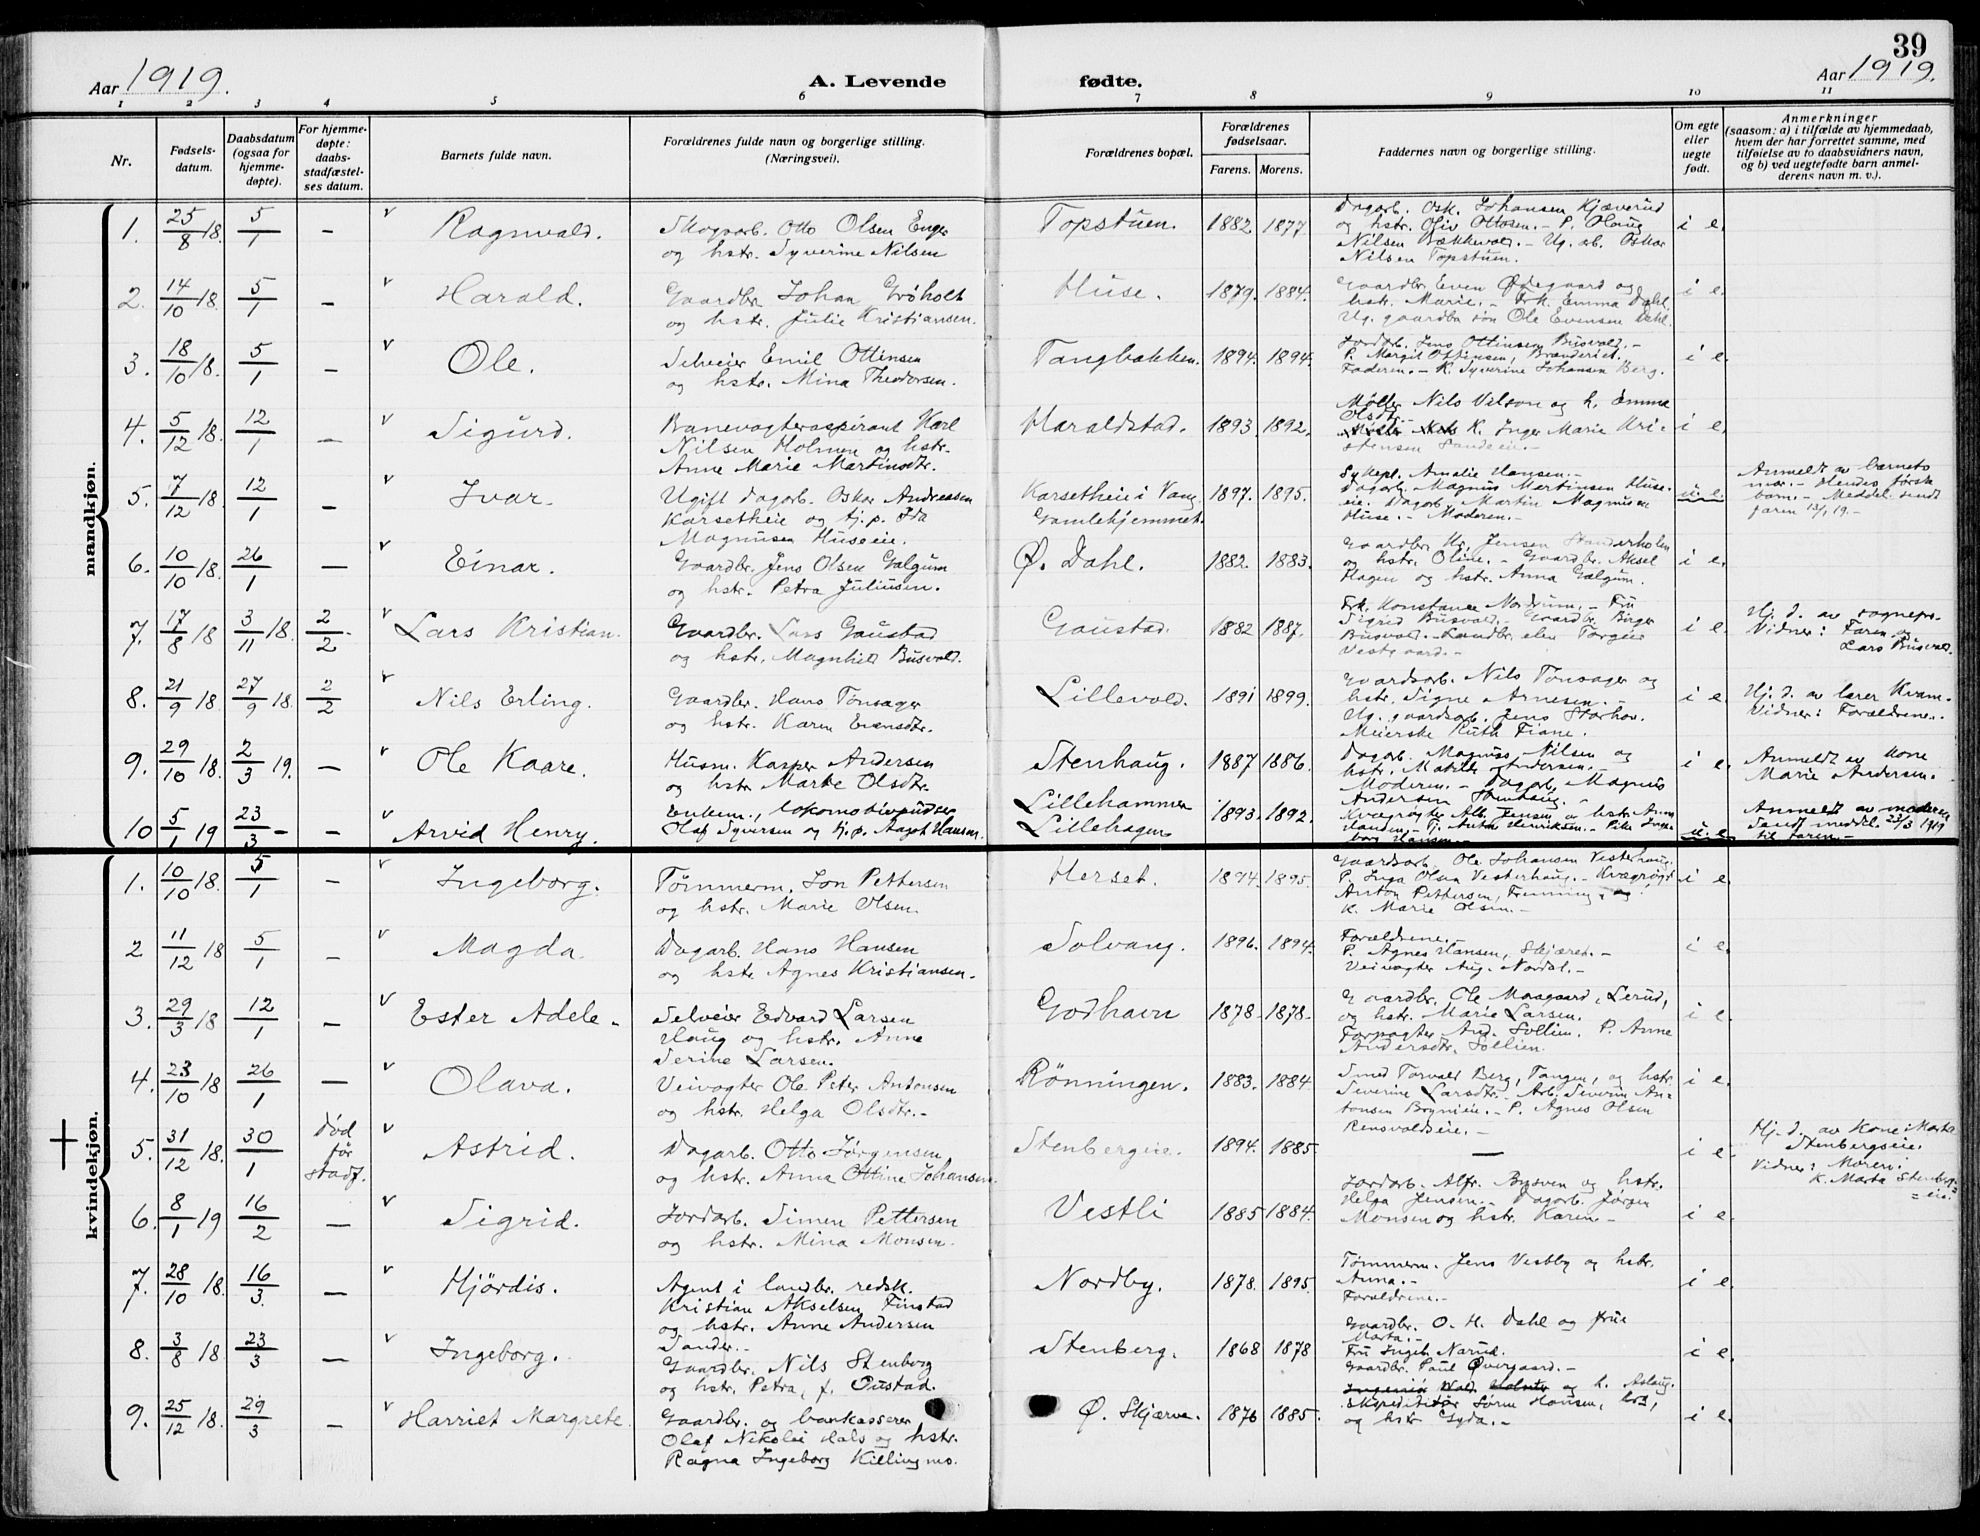 39
Aar 1919.
A. Levende
fødte.
Aar 1919.
1 2 3 4 5 6 7 8 9 10 11
Nr.
Fødsels-
datum.
Daabsdatum
(ogsaa for
hjemme-
døpte).
For hjemme-
døpte:
daabs-
stadfæstel-
ses datum.
Barnets fulde navn.
Forældrenes fulde navn og borgerlige stilling.
(Næringsvei).
Forældrenes bopæl.
Forældrenes
fødselsaar.
Farens. Morens.
Faddernes navn og borgerlige stilling.
Om egte
eller
uegte
født.
Anmerkninger
(saasom: a) i tilfælde av hjemmedaab,
hvem der har forrettet samme, med
tilføielse av to daabsvidners navn,
og b) ved uegtefødte barn anmel-
derens navn m. v.).
mandkjøn.
1. 25/8 18. 5/1 — v Ragnvald.
Skogsarb. Otto Olsen Enger
og hstr. Syverine Nilsen
Topstuen. 1882. 1877
Dagarb. Osk. Johansen Kjæverud
og hstr. Oliv Ottosen. - P. Olaug
Nilsen Bækkevold. - Ug. arb. Oskar
Nilsen Topstuen.
i e.
2. 14/10 18. 5/1 — v Harald.
Gaardbr. Johan Grøholt
og hstr. Julie Kristiansen.
Huse. 1879. 1884.
Gaardbr. Even Ødegaard og
hstr. Marie. - Frk. Emma Dahl.
Ug. gaardbr. søn Ole Evensen Dahl.
i e.
3. 18/10 18. 5/1 — v Ole.
Selveier Emil Ottinsen
og hstr. Mina Theodorsen.
Tangbakken. 1894. 1894.
Jordarb. Jens Ottinsen Busvold. -
P. Margit Ottinsen, Brænderiet.
Faderen. - K. Syverine Johansen Berg.
i e.
4. 5/12 18. 12/1 — v Sigurd.
Banevogteraspirant Karl
Nilsen Holmen og hstr.
Anne Marie Martinsdtr.
Haraldstad. 1893. 1892.
Møller Nils Nilson og h. Emma
Olsdtr.
K. Inger Marie Kri-
stensen Sandeie. -
i e.
5. 7/12 18. 12/1 — v Ivar.
Ugift dagarb. Oskar Andreasen
Karsetheie og tj. p. Ida
Magnusen Huseeie.
Karsetheie i Vang
Gamlehjemmet. 1897. 1895.
Sykepl. Amalie Hansen. -
Dagarb. Magnus Martinsen Huse-
eie. Dagarb. Martin Magnusen
Huse. - Moderen. -
u. e.
Anmeldt av barnets
mor. - Hendes første
barn. - Meddel. sendt
faren 13/1 19. -
6. 10/10 18. 26/1 — v Einar.
Gaardbr. Jens Olsen Galgum
og hstr. Petra Juliusen.
Ø. Dahl. 1882. 1883.
Gaardbr. Kr. Jensen Sanderholen
og hstr. Oline. - Gaardbr. Aksel
Hagen og hstr. Anna Galgum.
i e.
7. 17/8 18 3/11 18. 2/2 v Lars Kristian.
Gaardbr. Lars Gaustad
og hstr. Magnhild Busvold.
Gaustad. 1882 1887.
Frk. Konstance Nordrum. - Fru
Sigrid Busvold. - Gaardbr. Birger
Busvold. - Landbr. elev Torgeir
Vestgaard. -
i e.
Hj. d. av sognepr.
Vidner: Faren og
Lars Busvold.
8. 21/9 18 27/9 18. 2/2 v Nils Erling.
Gaardbr. Hans Tønsager
og hstr. Karen Evensdtr.
Lillevold. 1891 1899.
Gaardsarb. Nils Tønsager og
hstr. Signe Arnesen.
Ug. gaardsarb. Jens Storhov.
Meierske Ruth Fiane.
i e.
Hj. d. av lærer Kvam.
Vidner: Forældrene.
9. 29/10 18. 2/3 19. — v Ole Kaare.
Husm. Kasper Andersen
og hstr. Marte Olsdtr.
Stenhaug. 1887 1886.
Dagarb. Magnus Nilsen og
hstr. Matilde Andersen. -
Moderen. - Dagarb. Magnus
Andersen Stenhaug. -
i e.
Anmeldt av kone
Marie Andersen.
10 5/1 19 23/3 — — v Arvid Henry.
Enkem., lokomotivpudser
Olaf Syversen og tj. p. Aagot Hansen.
Lillehammer
Lillehagen 1893. 1892.
Kvægrøgter Alb. Jensen og hstr. Anna
Hansen. - Tj. Anton Henriksen. - Pike Inge-
borg Hansen. -
u. e.
Anmeldt av moderen
Sendt meddel. 23/3 1919
til faren. -
kvindekjøn.
1. 10/10 18. 5/1 — v Ingeborg.
Tømmerm. Jon Pettersen
og hstr. Marie Olsen.
Herset. 1894. 1895.
Gaardsarb. Ole Johansen Vesterhaug.
P. Inga Olsen Vesterhaug. - Kvægrøgt.
Anton Pettersen, Fremming, og
K. Marie Olsen. -
i e.
2 11/12 18 5/1 — v Magda.
Dagarb. Hans Hansen
og hstr. Agnes Kristiansen.
Solvang. 1896. 1894.
Forældrene.
P. Agnes Hansen, Skjæret. -
Veivogter Aug. Nordal. -
i e.
3. 29/3 18 12/1 — v Ester Adele.
Selveier Edvard Larsen
Haug og hstr. Anne
Serine Larsen.
Godhavn 1878. 1878.
Gaardbr. Ole Maagaard, Lerud,
og hstr. Marie Larsen.
Forpagter And. Sollien. P. Anne
Andersdtr. Sollien.
i e.
4. 23/10 18 26/1 — v Olava.
Veivogter Ole Peter Antonsen
og hstr. Helga Olsdtr. -
Rönningen. 1883. 1884
Smed Torvald Berg, Tangen, og hstr.
Severine Larsdtr. - Arb. Severin An-
tonsen Brynieie. - P. Agnes Olsen
Rensvoldseie. -
i e.
5. 31/12 18. 30/1 Död
før
stadf. v Astrid.
Dagarb. Otto Jørgensen
og hstr. Anna Ottine Johansen.
Stenbergeie. 1894. 1885. —
i e.
Hj. d. av kone Marta
Stenbergseie.
Vidner: Moren.
K. Marta Stenberg-
eie.
6. 8/1 19 16/2 — v Sigrid.
Jordarb. Simen Pettersen
og hstr. Mina Monsen.
Vestli 1885 1884.
Jordarb. Alfr. Bysven og hstr.
Helga Jensen. - Dagarb. Jørgen
Monsen og hstr. Karen. -
i e.
7. 28/10 18. 16/3. — v Hjördis.
Agent i landbr. redsk.
Kristian Akselsen Finstad
og hstr. Anne Andersen
Sander. -
Nordby. 1878. 1895.
Tømmerm. Jens Vestby og hstr.
Anna. -
Forældrene. -
i e.
8. 3/8 18. 23/3 — v Ingeborg.
Gaardbr. Nils Stenberg
og hstr. Petra, f. Oustad.
Stenberg. 1868 1878
Gaardbr. O. H. Dahl og frue
Marta. -
Fru Ingeb. Narud.
Gaardbr. Paul Øvergaard. -
i e.
9. 25/12 18. 29/3 — v Harriet Margrete.
Gaardbr. og bankasserer
Olaf Nikolai Hals og hstr.
Ragna Ingeborg Killingmo.
Ø. Skjærve. 1876 1885.
og h. Aslaug.
Ekspeditør Søren Hansen,
og hstr Gyda. -
i e.